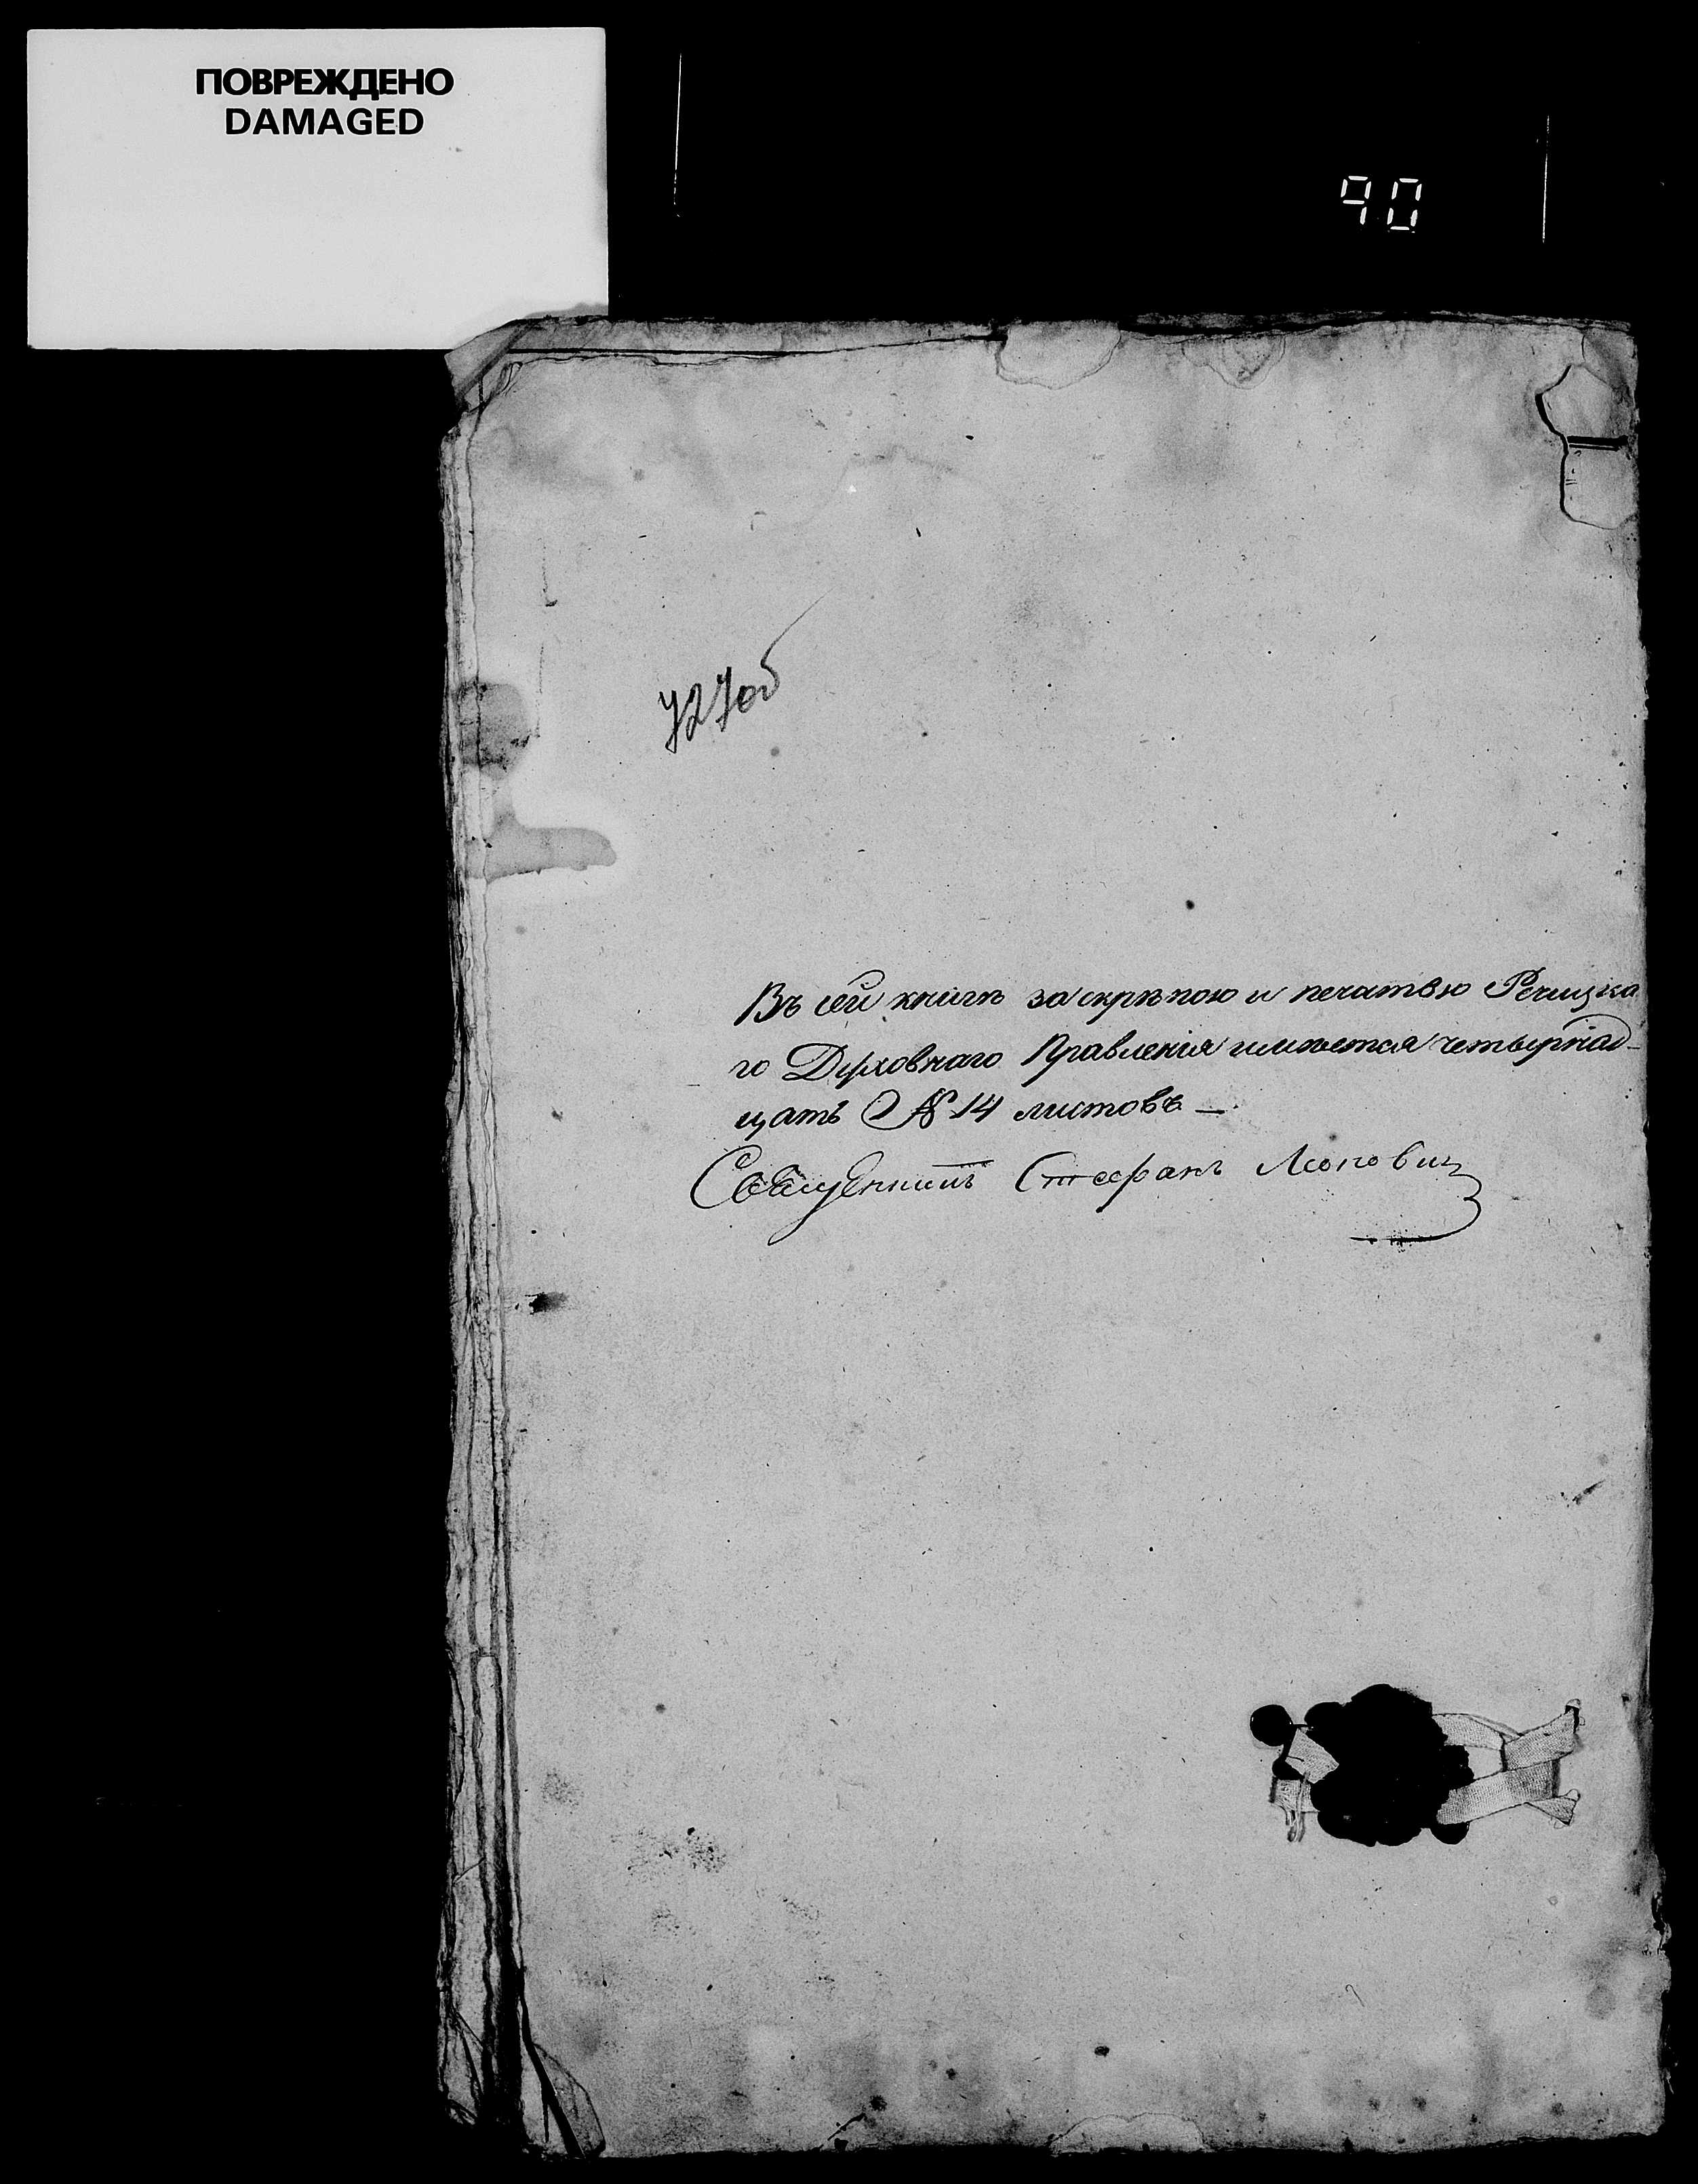 ПОВРЕЖДЕНО
DAMAGED
90
727об
Въ сей книгѣ за скрѣпою и печатью Речицка
го Духовнаго Правленія имѣется четырнад-
цать № 14 листовъ —
Священникъ Стефанъ